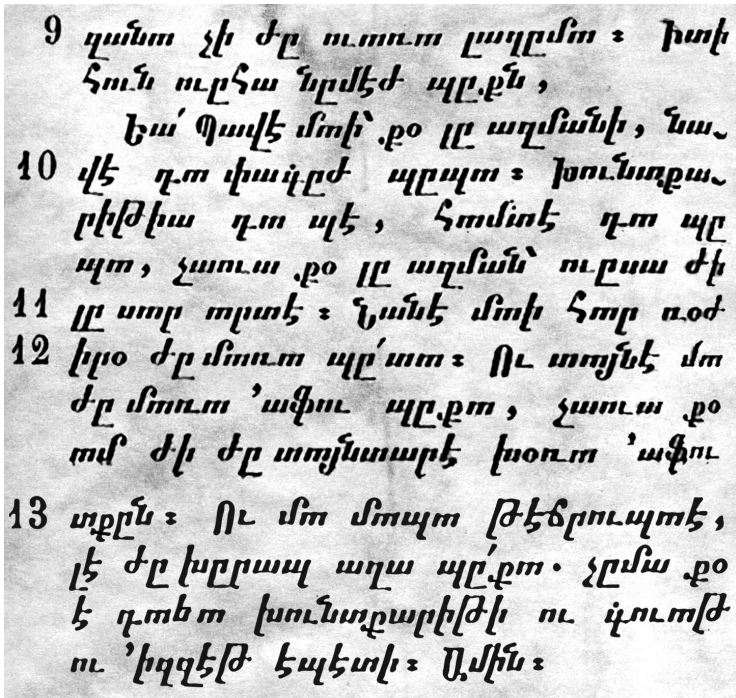 9 զանտ չի ժը ուտռտ լազըմտ ։ Իտի
Հուն ուըհա նըմէժ պըքն ,
Եա՛ Պավէ մտի՝ քօ լը ազմանի , նա֊
10 վէ դտ փագըժ պըպտ ։ խունտքա֊
րիթիա դտ պէ , Հտմտէ դտ պը
պտ , չաուա քօ լը ազման՝ ուըսա ժի
11 լը ստր տրտէ ։ Նանէ մտի Հտր ռօժ
12 իրօ ժը մտռտ պը՛տտ ։ Ու տտյնէ մտ
ժը մտռտ ’աֆու պըքտ , չաուա քօ
տմ ժի ժը տտյնտարէ խօռտ ’աֆու
13 տքըն ։ Ու մտ մտպտ թէճրուպտէ ,
լէ ժը խըրապ ազա պը՛քտ . չըմա քօ
է դտետ խունտքարիթի ու գուտթ
ու ’իզզէթ էպէտի ։ Ամին ։